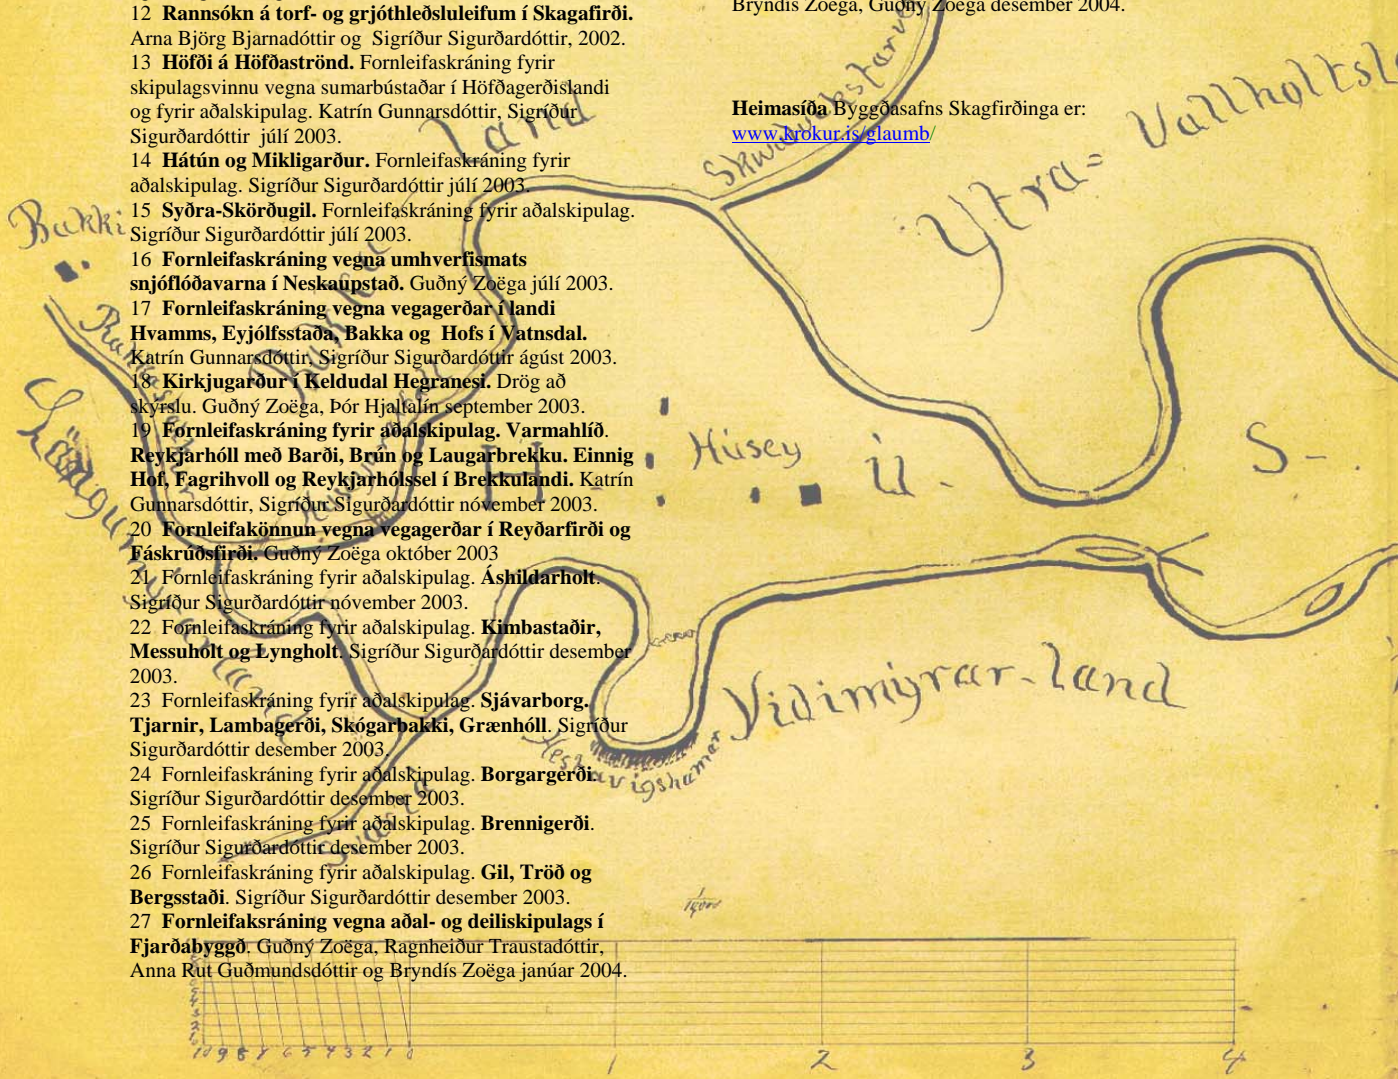 12 Rannsókn á torf- og grjóthleðsluleifum í Skagafirði.
Arna Björg Bjarnadóttir og Sigríður Sigurðardóttir, 2002.
13 Höfði á Höfðaströnd. Fornleifaskráning fyrir
skipulagsvinnu vegna sumarbústaðar í Höfðagerðislandi
og fyrir aðalskipulag. Katrín Gunnarsdóttir, Sigríður
Sigurðardóttir júlí 2003.
14 Hátún og Mikligarður. Fornleifaskráning fyrir
aðalskipulag. Sigríður Sigurðardóttir júlí 2003.
15 Syðra-Skörðugil. Fornleifaskráning fyrir aðalskipulag.
Sigríður Sigurðardóttir júlí 2003.
16 Fornleifaskráning vegna umhverfismats
snjóflóðavarna í Neskaupstað. Guðný Zoëga júlí 2003.
17 Fornleifaskráning vegna vegagerðar í landi
Hvamms, Eyjólfsstaða, Bakka og Hofs í Vatnsdal.
Katrín Gunnarsdóttir, Sigríður Sigurðardóttir ágúst 2003.
18 Kirkjugarður í Keldudal Hegranesi. Drög að
skýrslu. Guðný Zoëga, Þór Hjaltalín september 2003.
19 Fornleifaskráning fyrir aðalskipulag. Varmahlíð.
Reykjarhóll með Barði, Brún og Laugarbrekku. Einnig
Hof, Fagrihvoll og Reykjarhólssel í Brekkulandi. Katrín
Gunnarsdóttir, Sigríður Sigurðardóttir nóvember 2003.
20 Fornleifakönnun vegna vegagerðar í Reyðarfirði og
Fáskrúðsfirði. Guðný Zoëga október 2003
21 Fornleifaskráning fyrir aðalskipulag. Áshildarholt.
Sigríður Sigurðardóttir nóvember 2003.
22 Fornleifaskráning fyrir aðalskipulag. Kimbastaðir,
Messuholt og Lyngholt. Sigríður Sigurðardóttir desember
2003.
23 Fornleifaskráning fyrir aðalskipulag. Sjávarborg.
Tjarnir, Lambagerði, Skógarbakki, Grænhóll. Sigríður
Sigurðardóttir desember 2003.
24 Fornleifaskráning fyrir aðalskipulag. Borgargerði.
Sigríður Sigurðardóttir desember 2003.
25 Fornleifaskráning fyrir aðalskipulag. Brennigerði.
Sigríður Sigurðardóttir desember 2003.
26 Fornleifaskráning fyrir aðalskipulag. Gil, Tröð og
Bergsstaði. Sigríður Sigurðardóttir desember 2003.
27 Fornleifaksráning vegna aðal- og deiliskipulags í
Fjarðabyggð. Guðný Zoëga, Ragnheiður Traustadóttir,
Anna Rut Guðmundsdóttir og Bryndís Zoëga janúar 2004.
Bryndís Zoëga, Guðný Zoëga desember 2004.
Heimasíða Byggðasafns Skagfirðinga er:
www.krokur.is/glaumb/
Bakki
Bakka land
Ytra=
H
Húsey
ú -
S -
Vidimýrar-land
Svartá
10 9 8 7 6 5 4 3 2 1 0
1 2 3 4